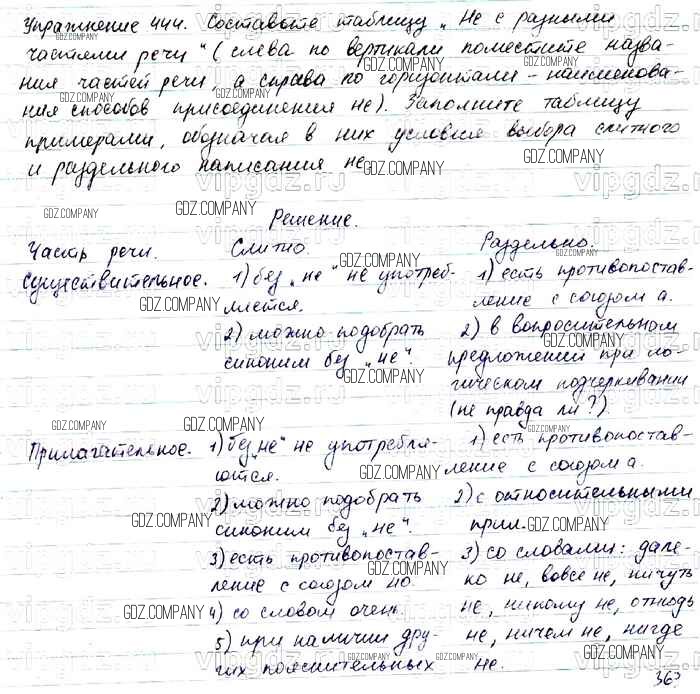 Упражнение 444. Составьте таблицу „Не с разными
частями речи" (слева по вертикали поместите назва-
ния частей речи, а справа по горизонтали - наименова-
ния способов присоединения не). Заполните таблицу
примерами, обозначая в них условия выбора слитного
и раздельного написания не
Решение.
Часть речи. Слитно. Раздельно.
Существительное. 1) без „не" не употреб- 1) есть противопостав-
ляется. ление с союзом а.
2) можно подобрать 2) в вопросительном
синоним без „не". предложении при ло-
гическом подчеркивании
(не правда ли?).
Прилагательное. 1) без „не" не употребля- 1) есть противопостав-
ются. ление с союзом а.
2) можно подобрать 2) с относительными
синоним без „не". прил.
3) есть противопостав- 3) со словами: дале-
ление с союзом но ко не, вовсе не, ничуть
4) со словом очень не, никому не, отнюдь
5) при наличии дру- не, ничем не, нигде
гих пояснительных не.
363
GDZ.COMPANY
vipgdz.ru